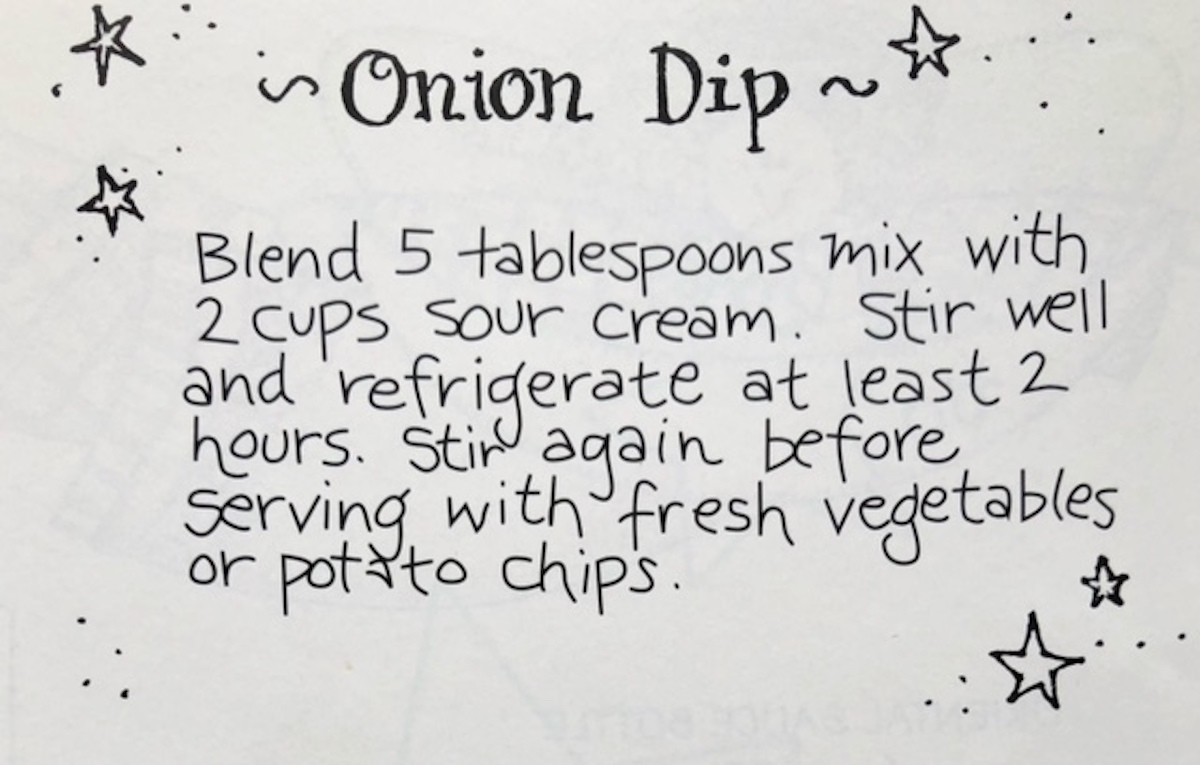 ~ Onion Dip ~
Blend 5 tablespoons mix with
2 cups sour cream. Stir well
and refrigerate at least 2
hours. Stir again before
serving with fresh vegetables
or potato chips.